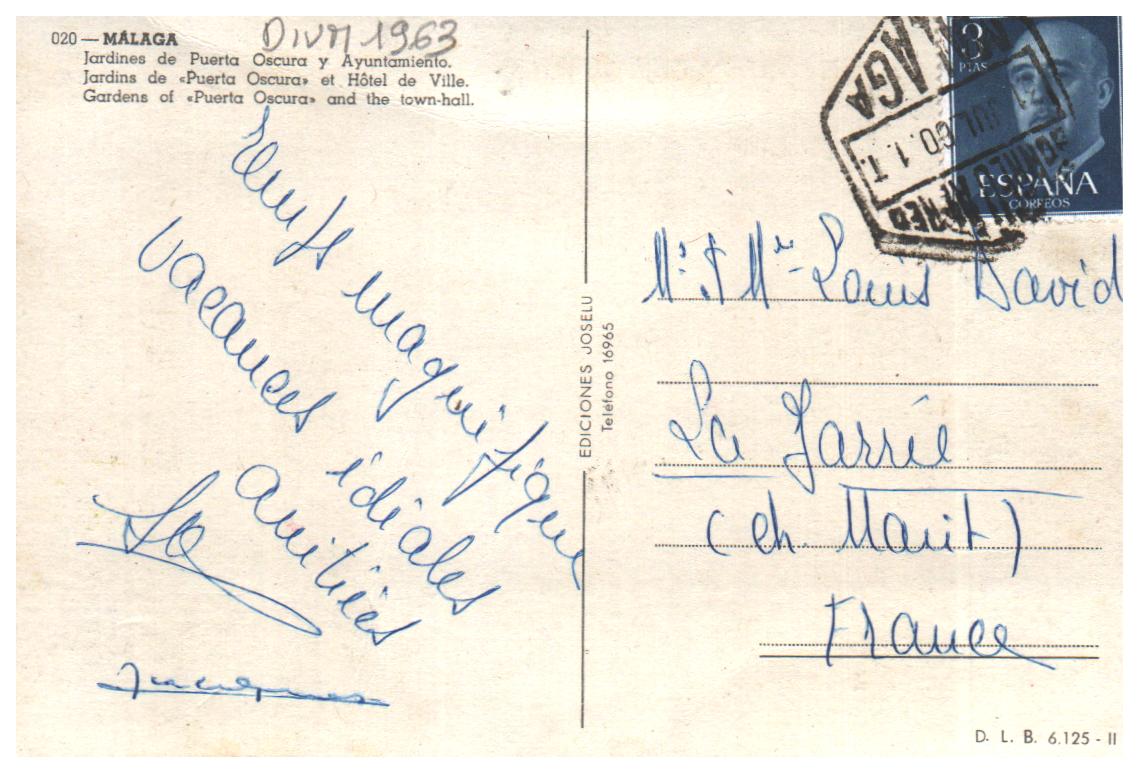 020 — MÁLAGA
DIVM 1963
Jardines de Puerta Oscura y Ayuntamiento.
Jardins de «Puerta Oscura» et Hôtel de Ville.
Gardens of «Puerta Oscura» and the town-hall.
Temps magnifique
vacances idéales
amitiés
Jacques
EDICIONES JOSELU
Teléfono 16965
MALAGA
JUL. 60. 1. T.
CORREO AEREO
3
PTAS
ESPAÑA
CORREOS
Mr & Me Louis David
La Jarrie
(ch. Marit)
France
D. L. B. 6.125 - II